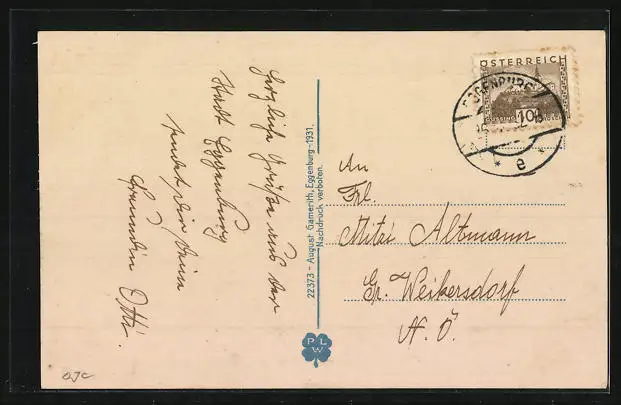 Herzliche Grüße aus der
Stadt Eggenburg
sendet dir deine
Freundin Otti.
22373 – August Gamerith, Eggenburg–1931.
Nachdruck verboten.
P L
W
ÖSTERREICH
10
EGGENBURG
e
An
Frl.
Mitzi Altmann
Gr. Weikersdorf
N. Ö.